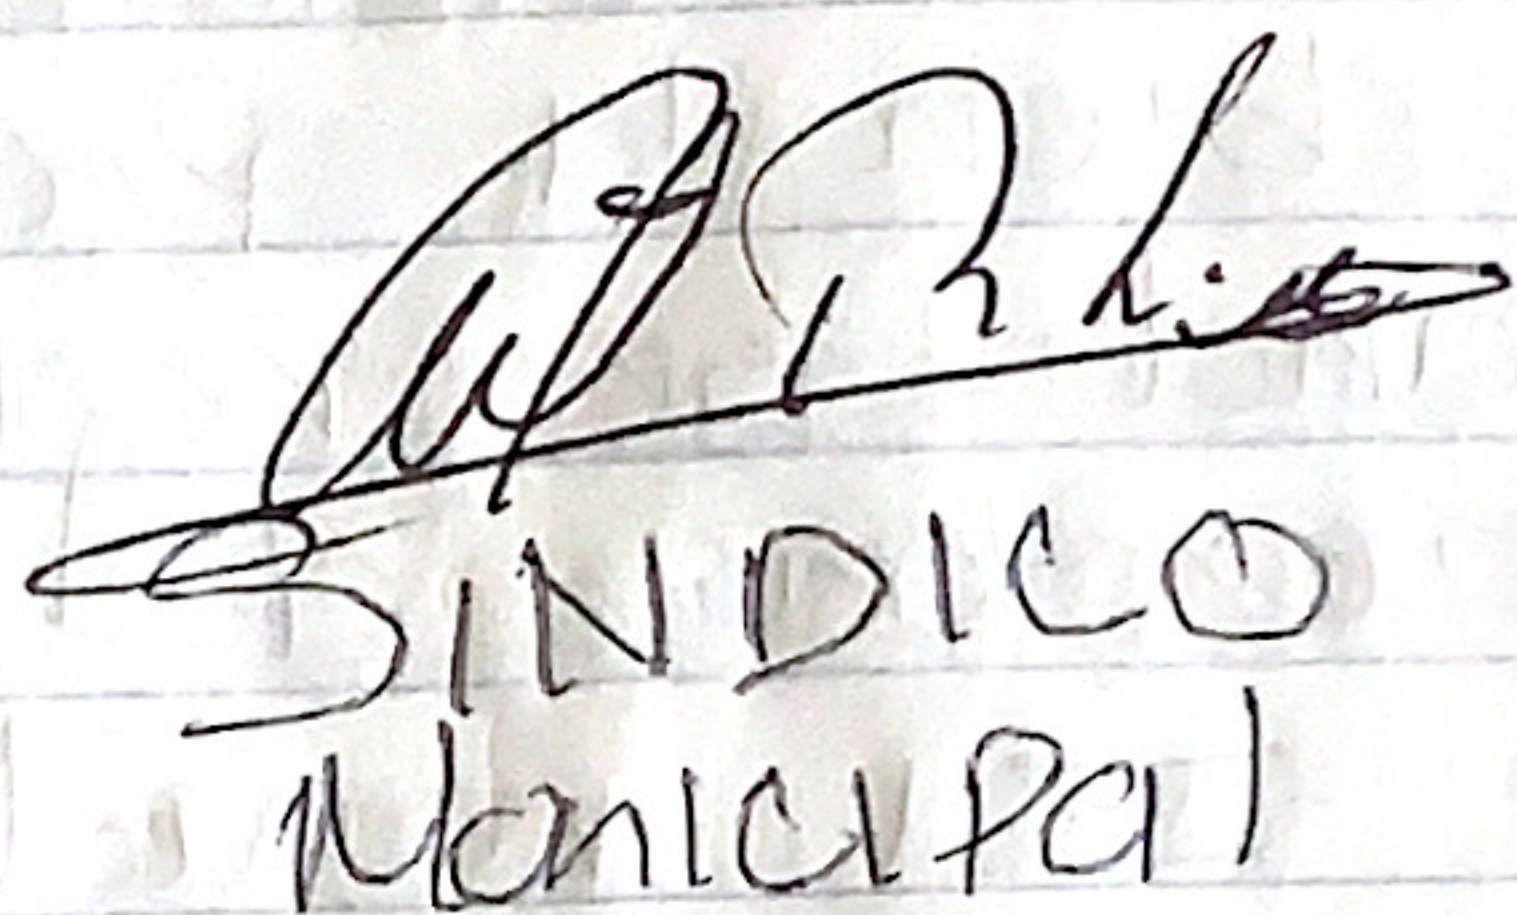 SINDICO
Monicipal